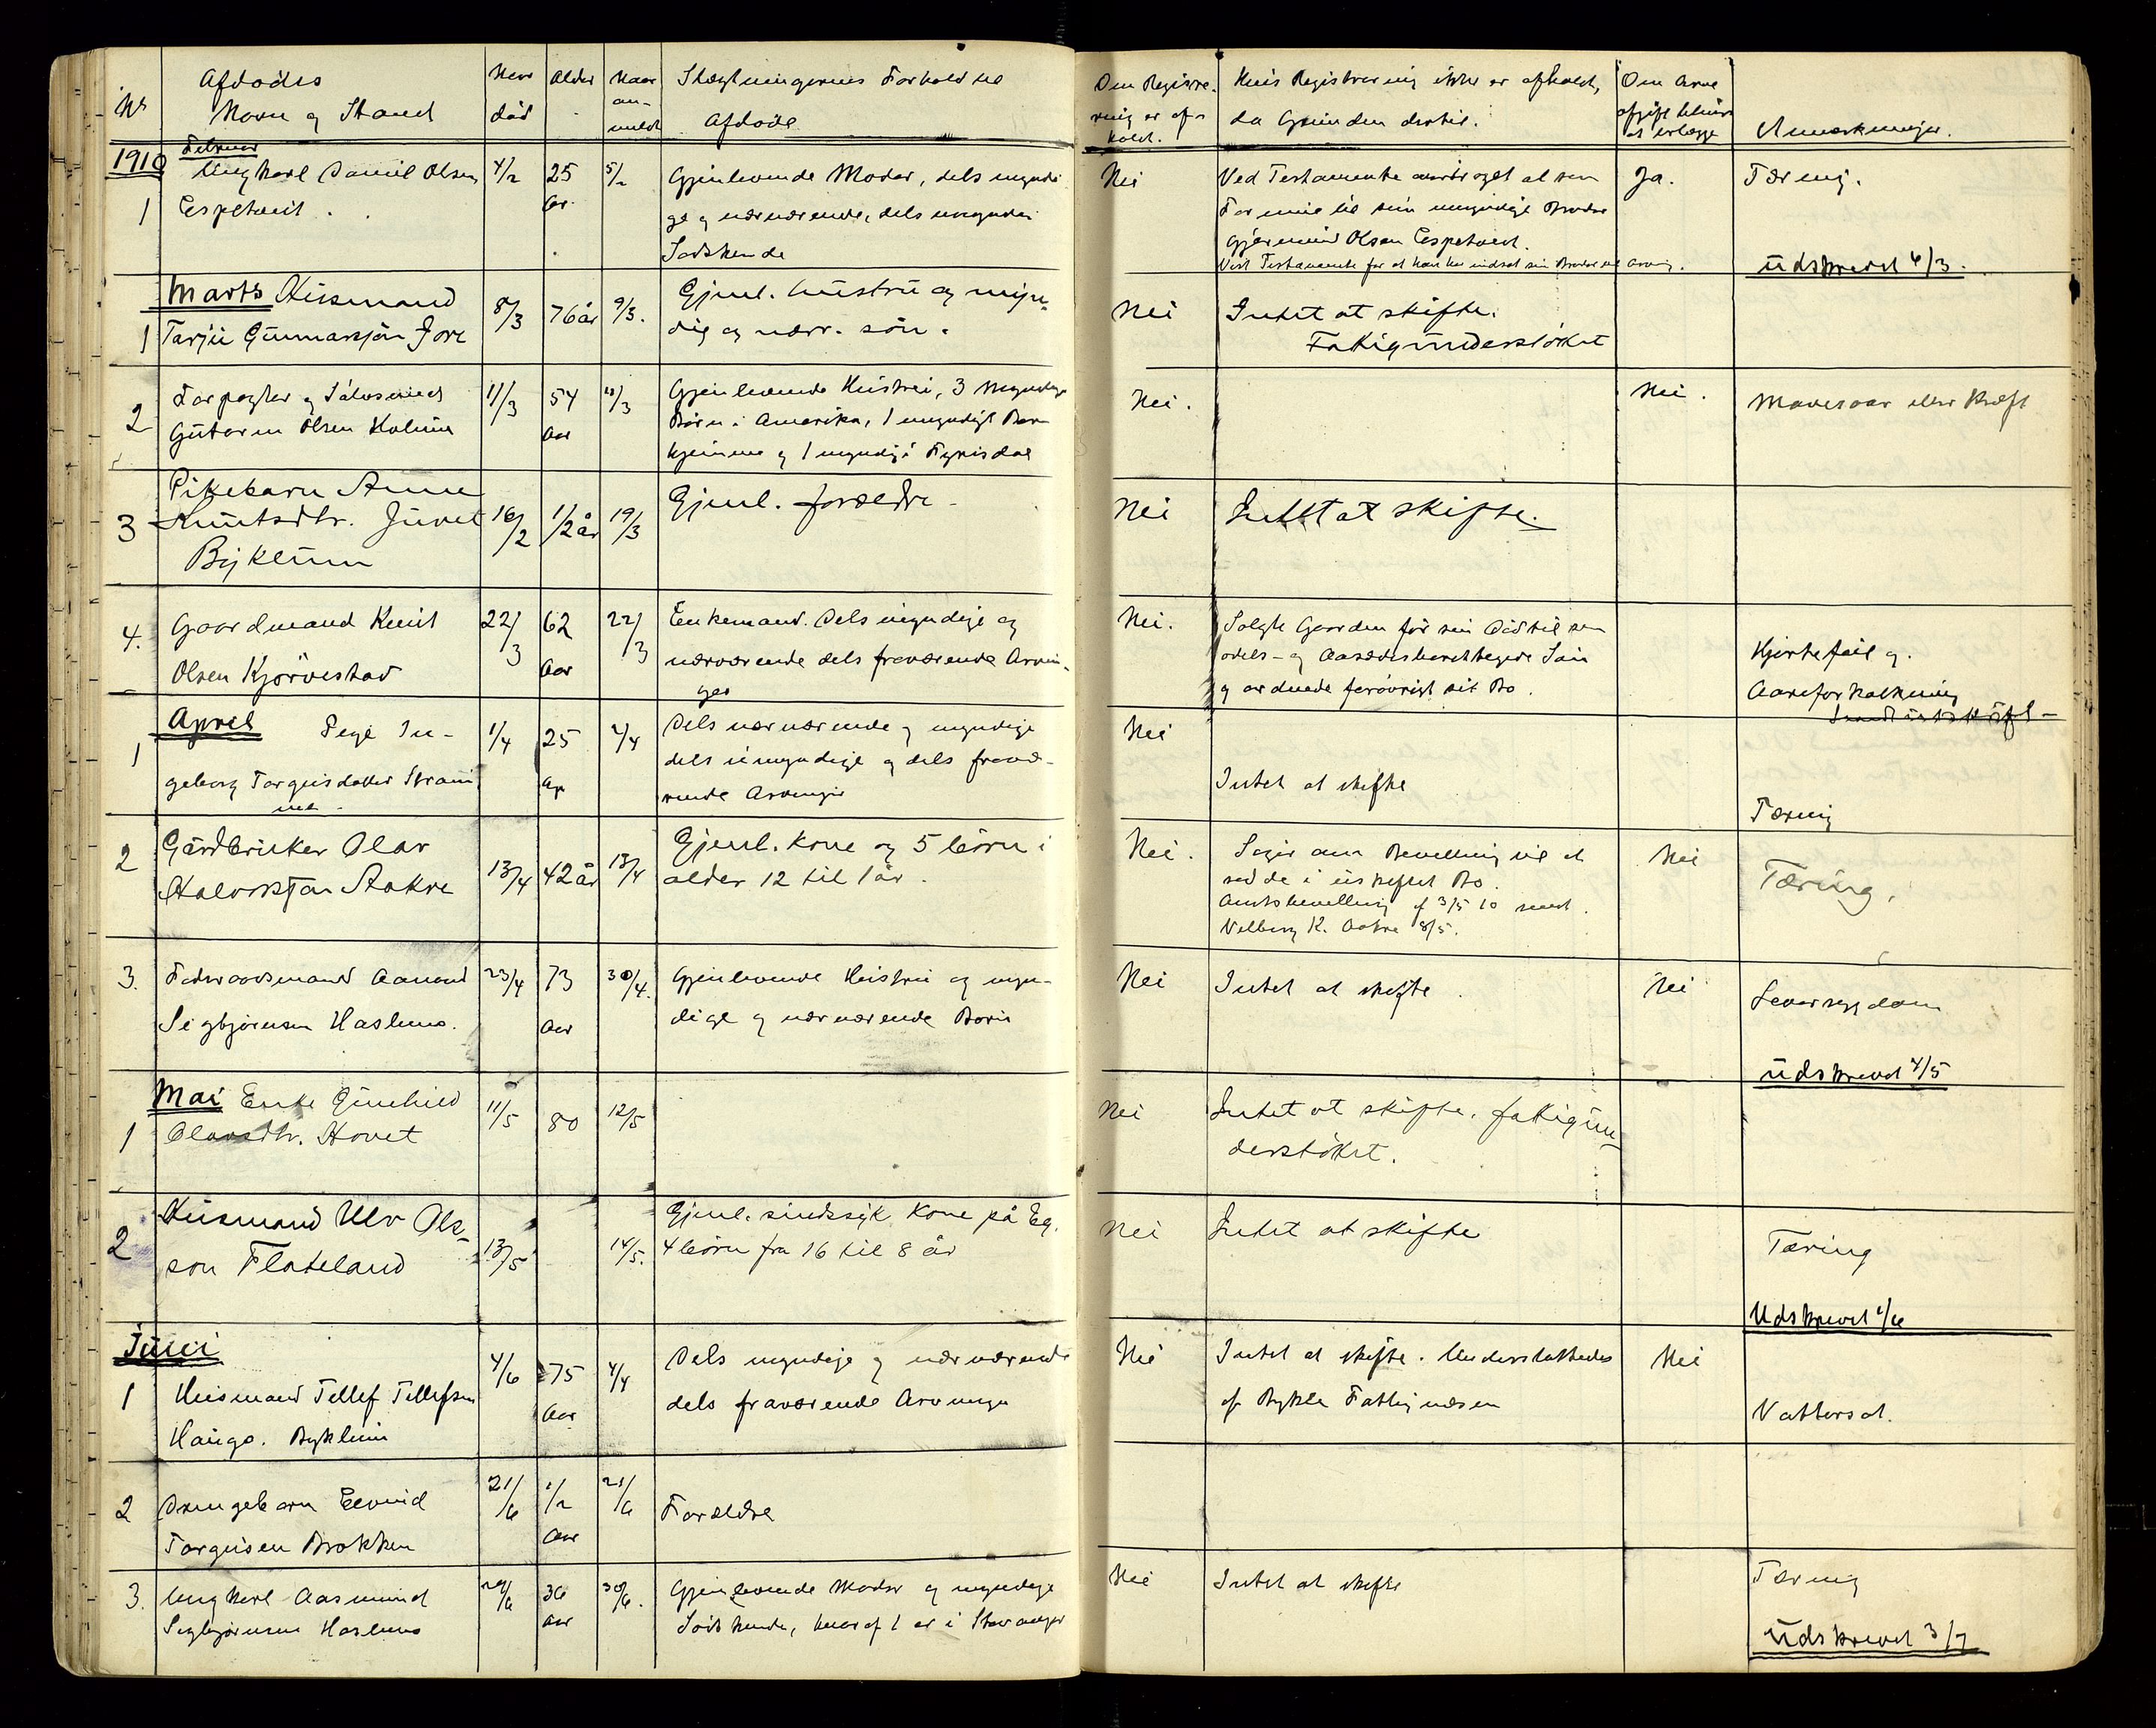 Nr
Afdødes
Navn og Stand
Naar
død
Alder
Naar
an-
meldt
Slægtningernes Forhold til
Afdøde
Om Registre-
ring er af-
holdt.
Hvis Registrering ikke er afholdt,
da Grunden dertil.
Om Arve
afgift
at erlægge
Anmerkninger.
1910
Februar
1
Ungkarl Daniel Olsen
Espetveit
4/2
25
Aar
5/2
Gjenlevende Moder, dels myndi
ge og nærværende, dels umyndi
Sødskende
Nei
Ved Testamente al sin
Formue til sin umyndige Broder
Gjermund Olsen Espetveit.
Vist Testamente for at han har indsat sin Broder til Arving.
Ja.
Tæring.
Udskrevet 6/3.
Marts Husmand
1
Tarjei Gunnarsjon Jore
8/3
76 år
9/3.
Gjenl. hustru og myn-
dig og nærv. søn.
Nei
Intet at skifte.
Fatigunderstøttet
2
Forpagter og Selveiend
Gutorm Olsen Holum
11/3
54
Aar
11/3
Gjenlevende Hustru, 3 Myndige
Børn i Amerika, 1 myndigt Barn
hjemme og 1 myndig i Fyrisdal
Nei.
Nei.
Mavesaar eller Kræft
3
Pikebarn Anne
Knutsdtr. Juvet
Byklum
16/2
1/2 år
19/3
Gjenl. forældre
Nei
Intet at skifte.
4.
Gaardmand Knut
Olsen Kjørvestad
22/3
62
Aar
22/3
Enkemand. Dels myndige og
nærværende dels fraværende Arvin-
ger
Nei.
Solgte Gaarden før sin Død til sin
odels- og Aasædesberettigede Søn
og ordnede forøvrigt sit Bo.
Hjertefeil og.
Aareforkalkning
April Pige In-
1
geborg Torgusdatter Straum
me
1/4
25
Aar
2/4
Dels nærværende og myndige
dels umyndige og dels fravæ-
rende Arvinger
Nei
Intet at skifte
Tæring
2
Gårdbruker Olav
Halvorsjon Aakre
13/4
42 år
13/4
Gjenl. kone og 5 børn i
alder 12 til 1 år.
Nei.
Søger om Bevilling til at
sidde i uskiftet Bo.
Amtsbevilling af 3/5 10 sendt
Vilborg K. Aakre 8/5.
Nei
Tæring.
3.
Føderaadsmand Aanund
Sigbjørnsen Haslemo.
23/4
73
Aar
30/4.
Gjenlevende Hustru og myn-
dige og nærværende Børn
Nei
Intet at skifte
Nei
Leversygdom
Udskrevet 4/5
Mai Enke Gunhild
1
Olavsdtr. Hovet
11/5
80
12/5
Nei
Intet at skifte. fatigun-
derstøttet.
2
Husmand Ulv Ols-
son Flateland
13/5
14/5.
Gjenl. sindssyk kone på Eg.
4 børn fra 16 til 8 år
Nei
Intet at skifte
Tæring
Udskrevet 1/6
Juni
1
Husmand Tellef Tellefsen
Haugo. Byklum
4/6
75
Aar
4/4
Dels myndige og nærværende
dels fraværende Arvinger
Nei
Intet at skifte. Understøttedes
af Bykle Fattigvæsen
Nei
Vattersot.
2
Drengebarn Eivind
Torgusen Brokken
21/6
1/2
Aar
21/6
Forældre
3.
Ungkarl Aasmund
Sigbjørnsen Haslemo
29/6
36
Aar
30/6.
Gjenlevende Moder og myndige
Sødskende, hvoraf 1 er i Stavanger
Nei
Intet at skifte
Tæring
Udskrevet 3/7